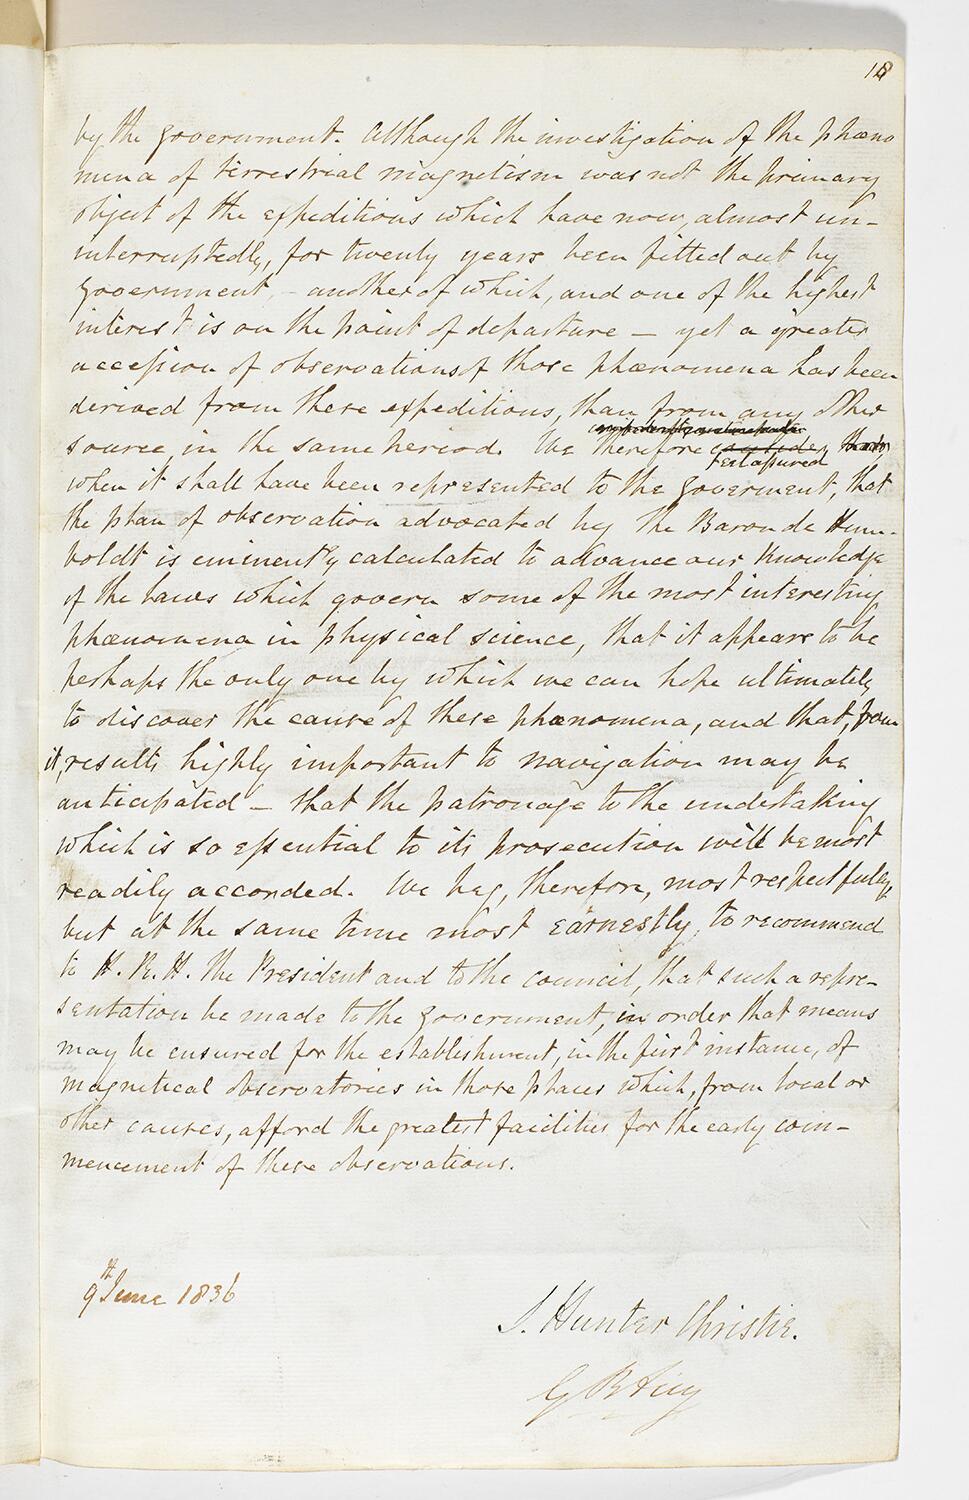 18
by the Government. Although the investigation of the phæno
mena of terrestrial magnetism was not the primary
object of the expeditions which have now, almost un-
interruptedly, for twenty years been fitted out by
Government, – another of which, and one of the highest
interest is on the point of departure – yet a greater
accession of observations of those phænomena has been
derived from these expeditions, than from any other
source, in the same period. We therefore consider, that
rest assured
when it shall have been represented to the Goverment, that
the plan of observation advocated by the Baron de Hum-
boldt is eminently calculated to advance our knowledge
of the Laws which govern some of the most interesting
phænomena in physical science, that it appears to be
perhaps the only one by which we can hope ultimately
to discover the cause of these phænomena, and that, from
it, results highly important to navigation may be
anticipated – that the patronage to the undertaking
which is so essential to its prosecution will be most
readily accorded. We beg, therefore, most respectfully,
but at the same time most earnestly, to recommend
to H. R. H. the President and to the council, that such a repre-
sentation be made to the Government, in order that means
may be ensured for the establishment, in the first instance, of
magnetical observatories in those places which, from local or
other causes, afford the greatest facilities for the early com-
mencement of these observations.
9th June 1836
S. Hunter Christie.
G B Airy